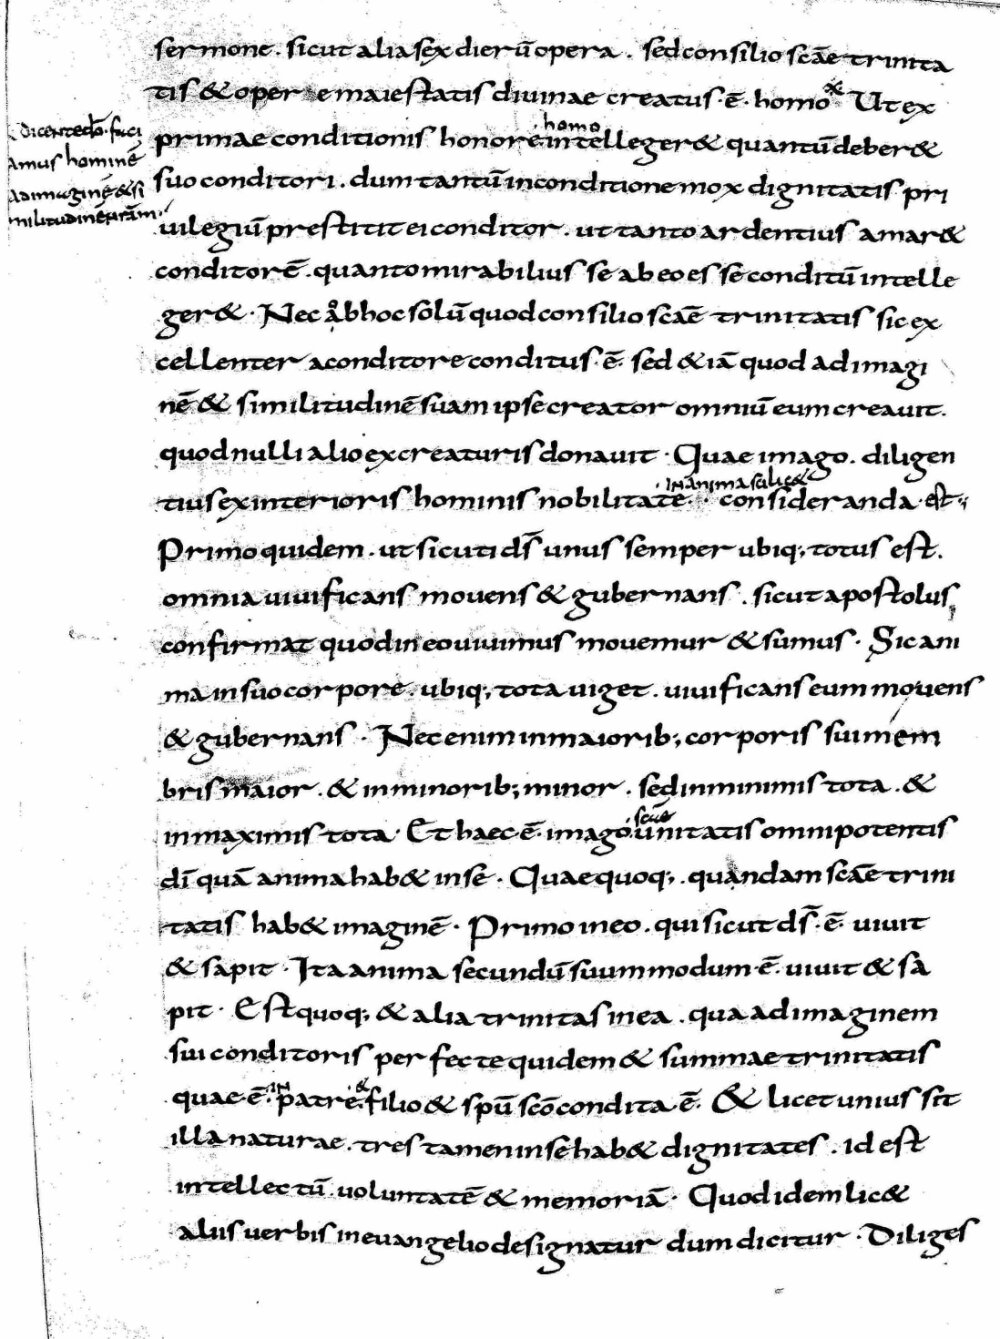 sermone. sicut alia sex dierū opera. sed consilio scāe trinita
tis & operae maiestatis divinae creatus. ē. homo Ut ex
dicente dō. faci
amus hominē
ad imaginē & si
militudinē nrām.
homo
primae conditionis honore intelleger& quantū deber&
suo conditori. dum tantū in conditione mox dignitatis pri
uilegiū prestitit ei conditor. ut tanto ardentius amar&
conditorē. quanto mirabilius se ab eo esse conditū intelle
ger&. Nec ob hoc solū quod consilio scāe trinitatis sic ex
cellenter a conditore conditus. ē. sed &iā quod ad imagi
nē & similitudinē suam ipse creator omniū eum creauit.
quod nulli alio ex creaturis donauit. Quae imago. diligen
in anima scilic&
tius ex interioris hominis nobilitate. consideranda. est;
Primo quidem. ut sicuti ds̄ unus semper ubiq; totus est.
omnia uiuificans mouens & gubernans. sicut apostolus
confirmat quod in eo uiuimus mouemur & sumus. Sic ani
ma in suo corpore. ubiq; tota uiget. uiuificans eum mouens
& gubernans. Nec enim in maiorib; corporis sui mem
bris maior. & in minorib; minor. sed in minimis tota. &
in maximis tota. Et haec. ē. imago unitatis omnipotentis
dī quā anima hab& in se. Quae quoq; quandam scāe trini
tatis hab& imaginē. Primo in eo. qui sicut ds̄. ē. uiuit
& sapit. Ita anima secundū suum modum. ē. uiuit & sa
pit. Est quoq; & alia trinitas in ea. qua ad imaginem
sui conditoris perfecte quidem & summae trinitatis
in &
quae. ē. patre. filio & spū scō condita. ē. & licet unius sit
illa naturae. tres tamen in se hab& dignitates. id est
intellectū. uoluntatē & memoriā. Quod idem lic&
aliis uerbis in euangelio designatur dum dicitur. Diliges